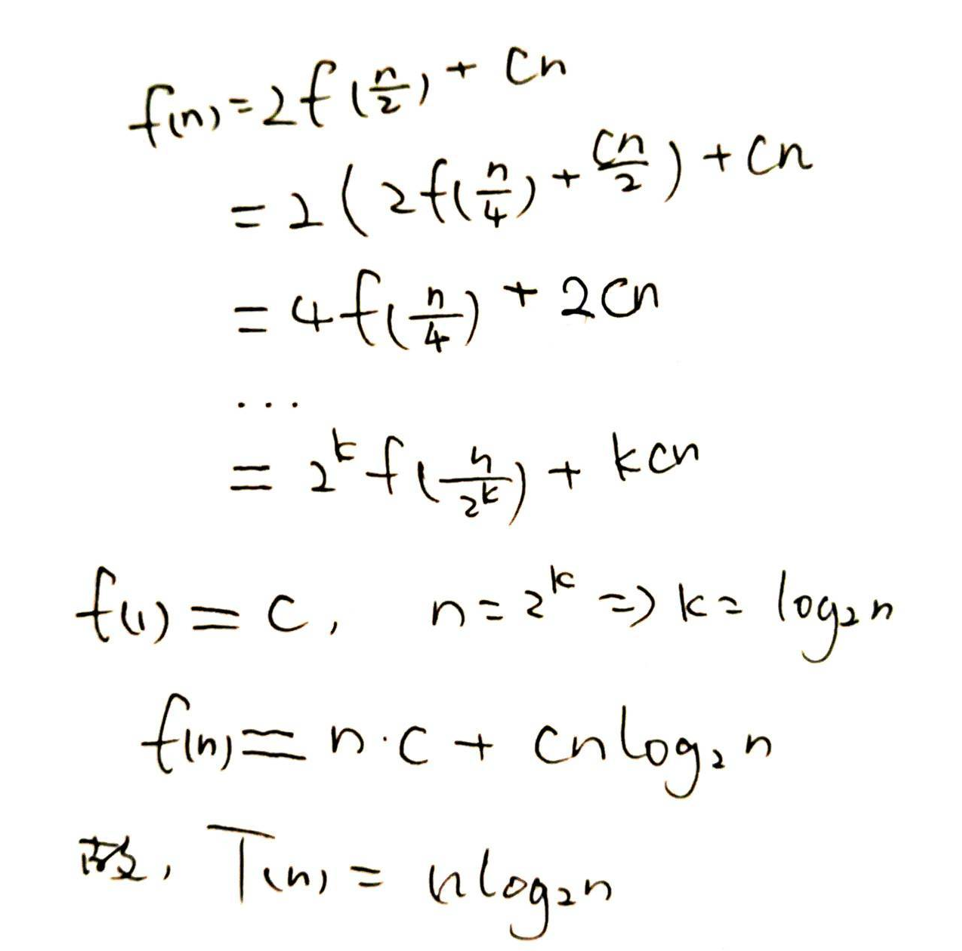 f(n)=2f(n/2)+Cn
=2(2f(n/4)+Cn/2)+Cn
=4f(n/4)+2Cn
...
=2^k f(n/2^k)+kcn
f(1)=C, n=2^k => k=log₂n
f(n)=n·C+Cnlog₂n
故, T(n)=nlog₂n